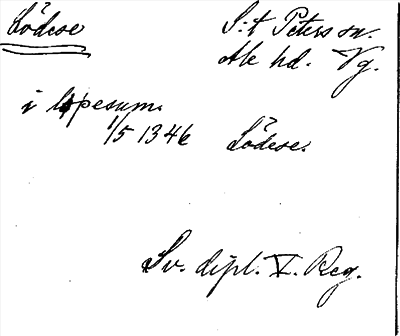 Lödese
S:t Peters sn.
Ale hd. Vg.
i lopesum
1/5 1346 Lödese.
Sv. dipl. V. Reg.